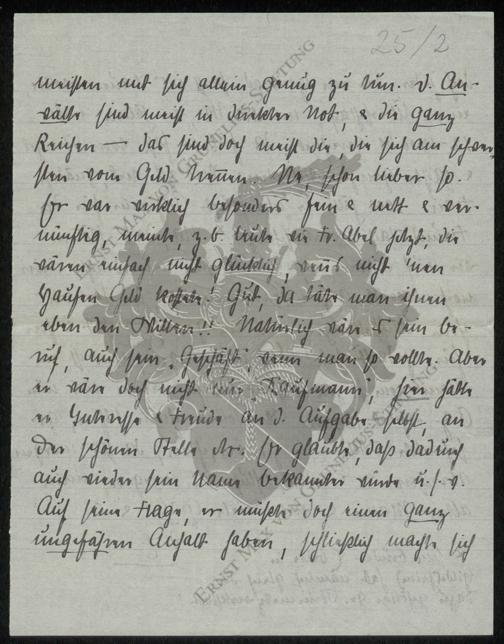 25/2
meisten mit sich allein genug zu tun. D. An-
wälte sind meist in direkter Not, & die ganz
Reichen — das sind doch meist die, die sich am schwer-
sten vom Geld trennen. Ne, schon lieber so.
Er war wirklich besonders fein & nett & ver-
nünftig, meinte, z.b. Leute wie Fr. Abel jetzt, die
wären einfach nicht glücklich, wenns nicht 'nen
Haufen Geld kostete! Gut, da täte man ihnen
eben den Willen!! Natürlich wäre es sein Be-
ruf, auch sein "Geschäft", wenn man so wollte. Aber
er wäre doch nicht nur "Kaufmann", hier hätte
er Interesse & Freude an d. Aufgabe selbst, an
der schönen Stelle etc. Er glaubte, daß dadurch
auch wieder sein Name bekannter würde u.s.w.
Auf seine Frage, er müßte doch einen ganz
ungefähren Anhalt haben, schließlich machte sich
ERNST MAX VON GRUNELIUS-STIFTUNG
ERNST MAX VON GRUNELIUS-STIFTUNG